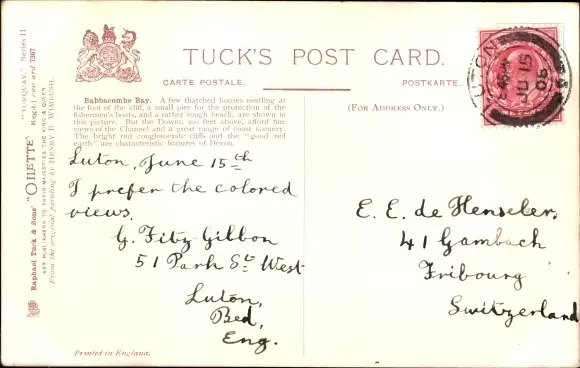 TUCK'S POST CARD.
CARTE POSTALE.
POSTKARTE.
(FOR ADDRESS ONLY.)
Babbacombe Bay. A few thatched houses nestling at
the foot of the cliff, a small pier for the protection of the
fishermen's boats, and a rather rough bench, are shown in
this picture. But the Downs, 200 feet above, afford fine
views of the Channel and a great range of coast scenery.
The bright red conglomerate cliffs and the "good red
earth" are characteristic features of Devon.
Luton, June 15th
I prefer the colored
views.
G. Fitz Gibbon
51 Park St West
Luton,
Bed,
Eng.
E. E. de Henseler,
41 Gambach
Fribourg
Switzerland
Printed in England.
Raphael Tuck & Sons' "OILETTE"
"TORQUAY," Series II
ART PUBLISHERS TO THEIR MAJESTIES THE KING & QUEEN
From the original painting by HENRY B. WIMBUSH.
LUTON
JU 15
05